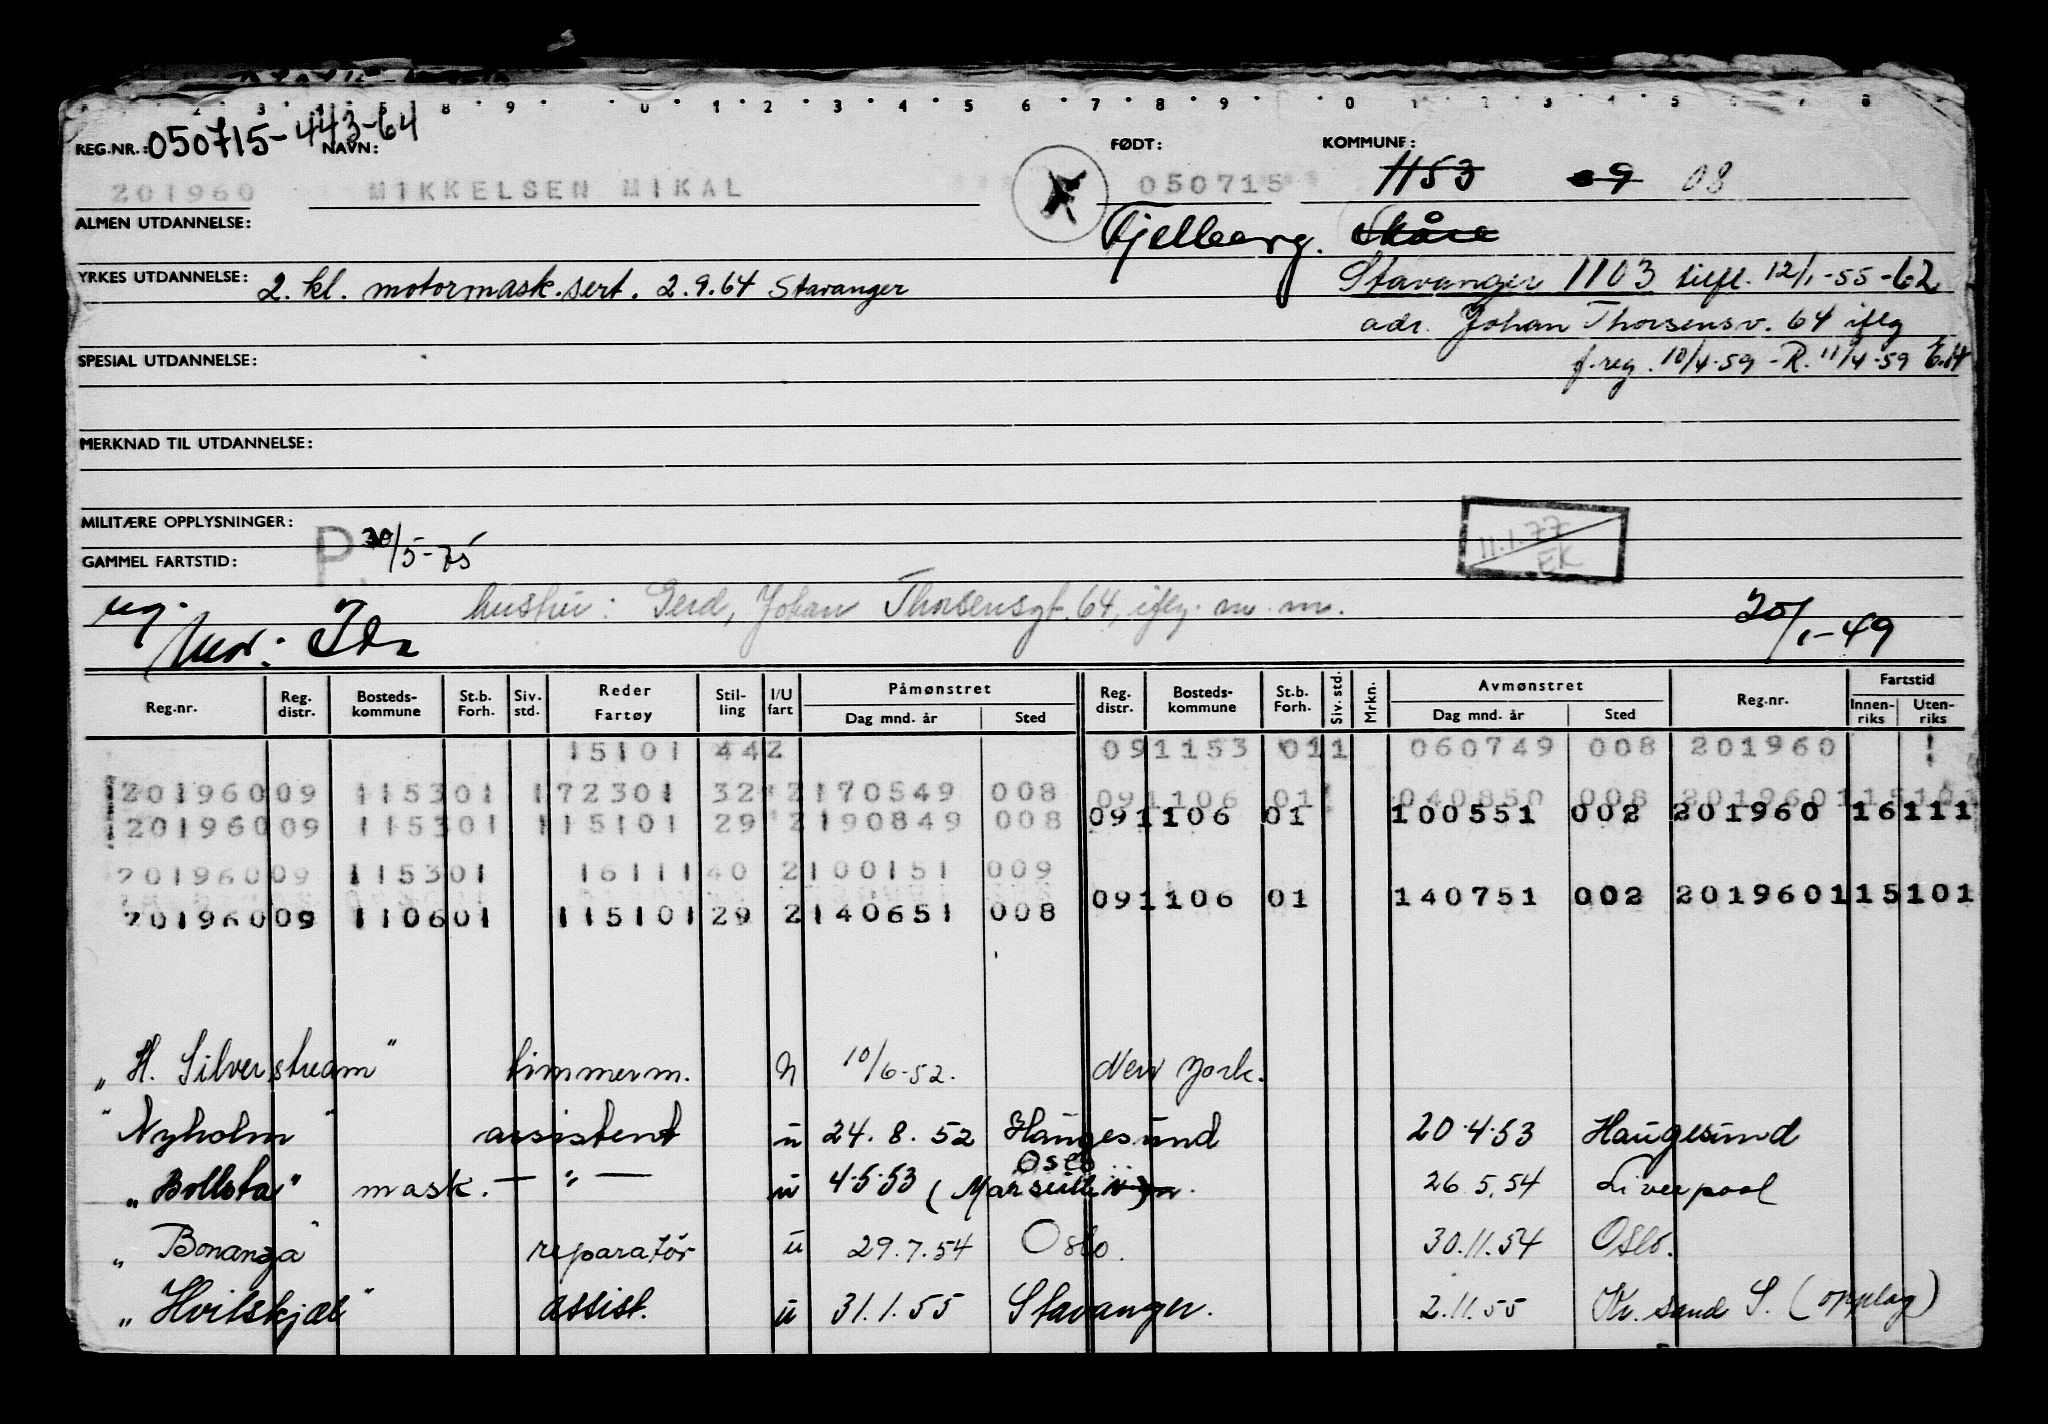 REG.NR.: 050715-443-64 NAVN: FØDT: KOMMUNE:
201960 MIKKELSEN MIKAL 050715 1153 09 08
ALMEN UTDANNELSE: Fjelberg. Skåre
YRKES UTDANNELSE: 2. kl. motormask.sert. 2.9.64 Stavanger Stavanger 1103 12/1-55-62
adr. Johan Thorsensv. 64 iflg
SPESIAL UTDANNELSE: f.reg. 10/4-59 - R. 11/4-59
MERKNAD TIL UTDANNELSE:
MILITÆRE OPPLYSNINGER: 11.1.77
GAMMEL FARTSTID: P. 30/5-75 EK
hustru: Gerd, Johan Thorsensgt. 64, iflg. m.m.
Mor: Ida 20/1-49
Reg.nr. Reg. distr. Bosteds- kommune St.b. Forh. Siv. std. Reder Fartøy Stil- ling I/U fart Påmønstret Dag mnd. år Sted Reg. distr. Bosteds- kommune St.b. Forh. Siv. std. Mrkn. Avmønstret Dag mnd. år Sted Reg.nr. Fartstid Innen- riks Uten- riks
15101 442 091153 011 060749 008 201960
20196009 115301 172301 32 2170549 008 091106 01 040850 008 201960115101
20196009 115301 115101 29 2190849 008 091106 01 100551 002 201960 16111
20196009 115301 16111 40 2100151 009
20196009 110601 115101 29 2140651 008 091106 01 140751 002 201960115101
„H. Silverstream" timmerm. u 10/6-52. New York.
"Nyholm" assistent u 24.8.52 Haugesund 20.4.53 Haugesund
„Bollsta" mask. — " — u 4.5.53 Oslo (Marseille) 26.5.54 Liverpool
„Bonanza" reparatör u 29.7.54 Oslo. 30.11.54 Oslo.
„Hvilskjær" assist. u 31.1.55 Stavanger. 2.11.55 Kr.sand S. (opplag)